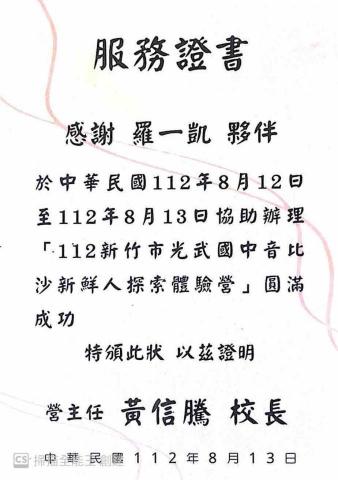 服務證書
感謝 羅一凱 夥伴
於中華民國112年8月12日
至112年8月13日協助辦理
「112新竹市光武國中音比
沙新鮮人探索體驗營」圓滿
成功
特頒此狀 以茲證明
營主任 黃信騰 校長
中華民國112年8月13日
CS 掃描全能王 創建